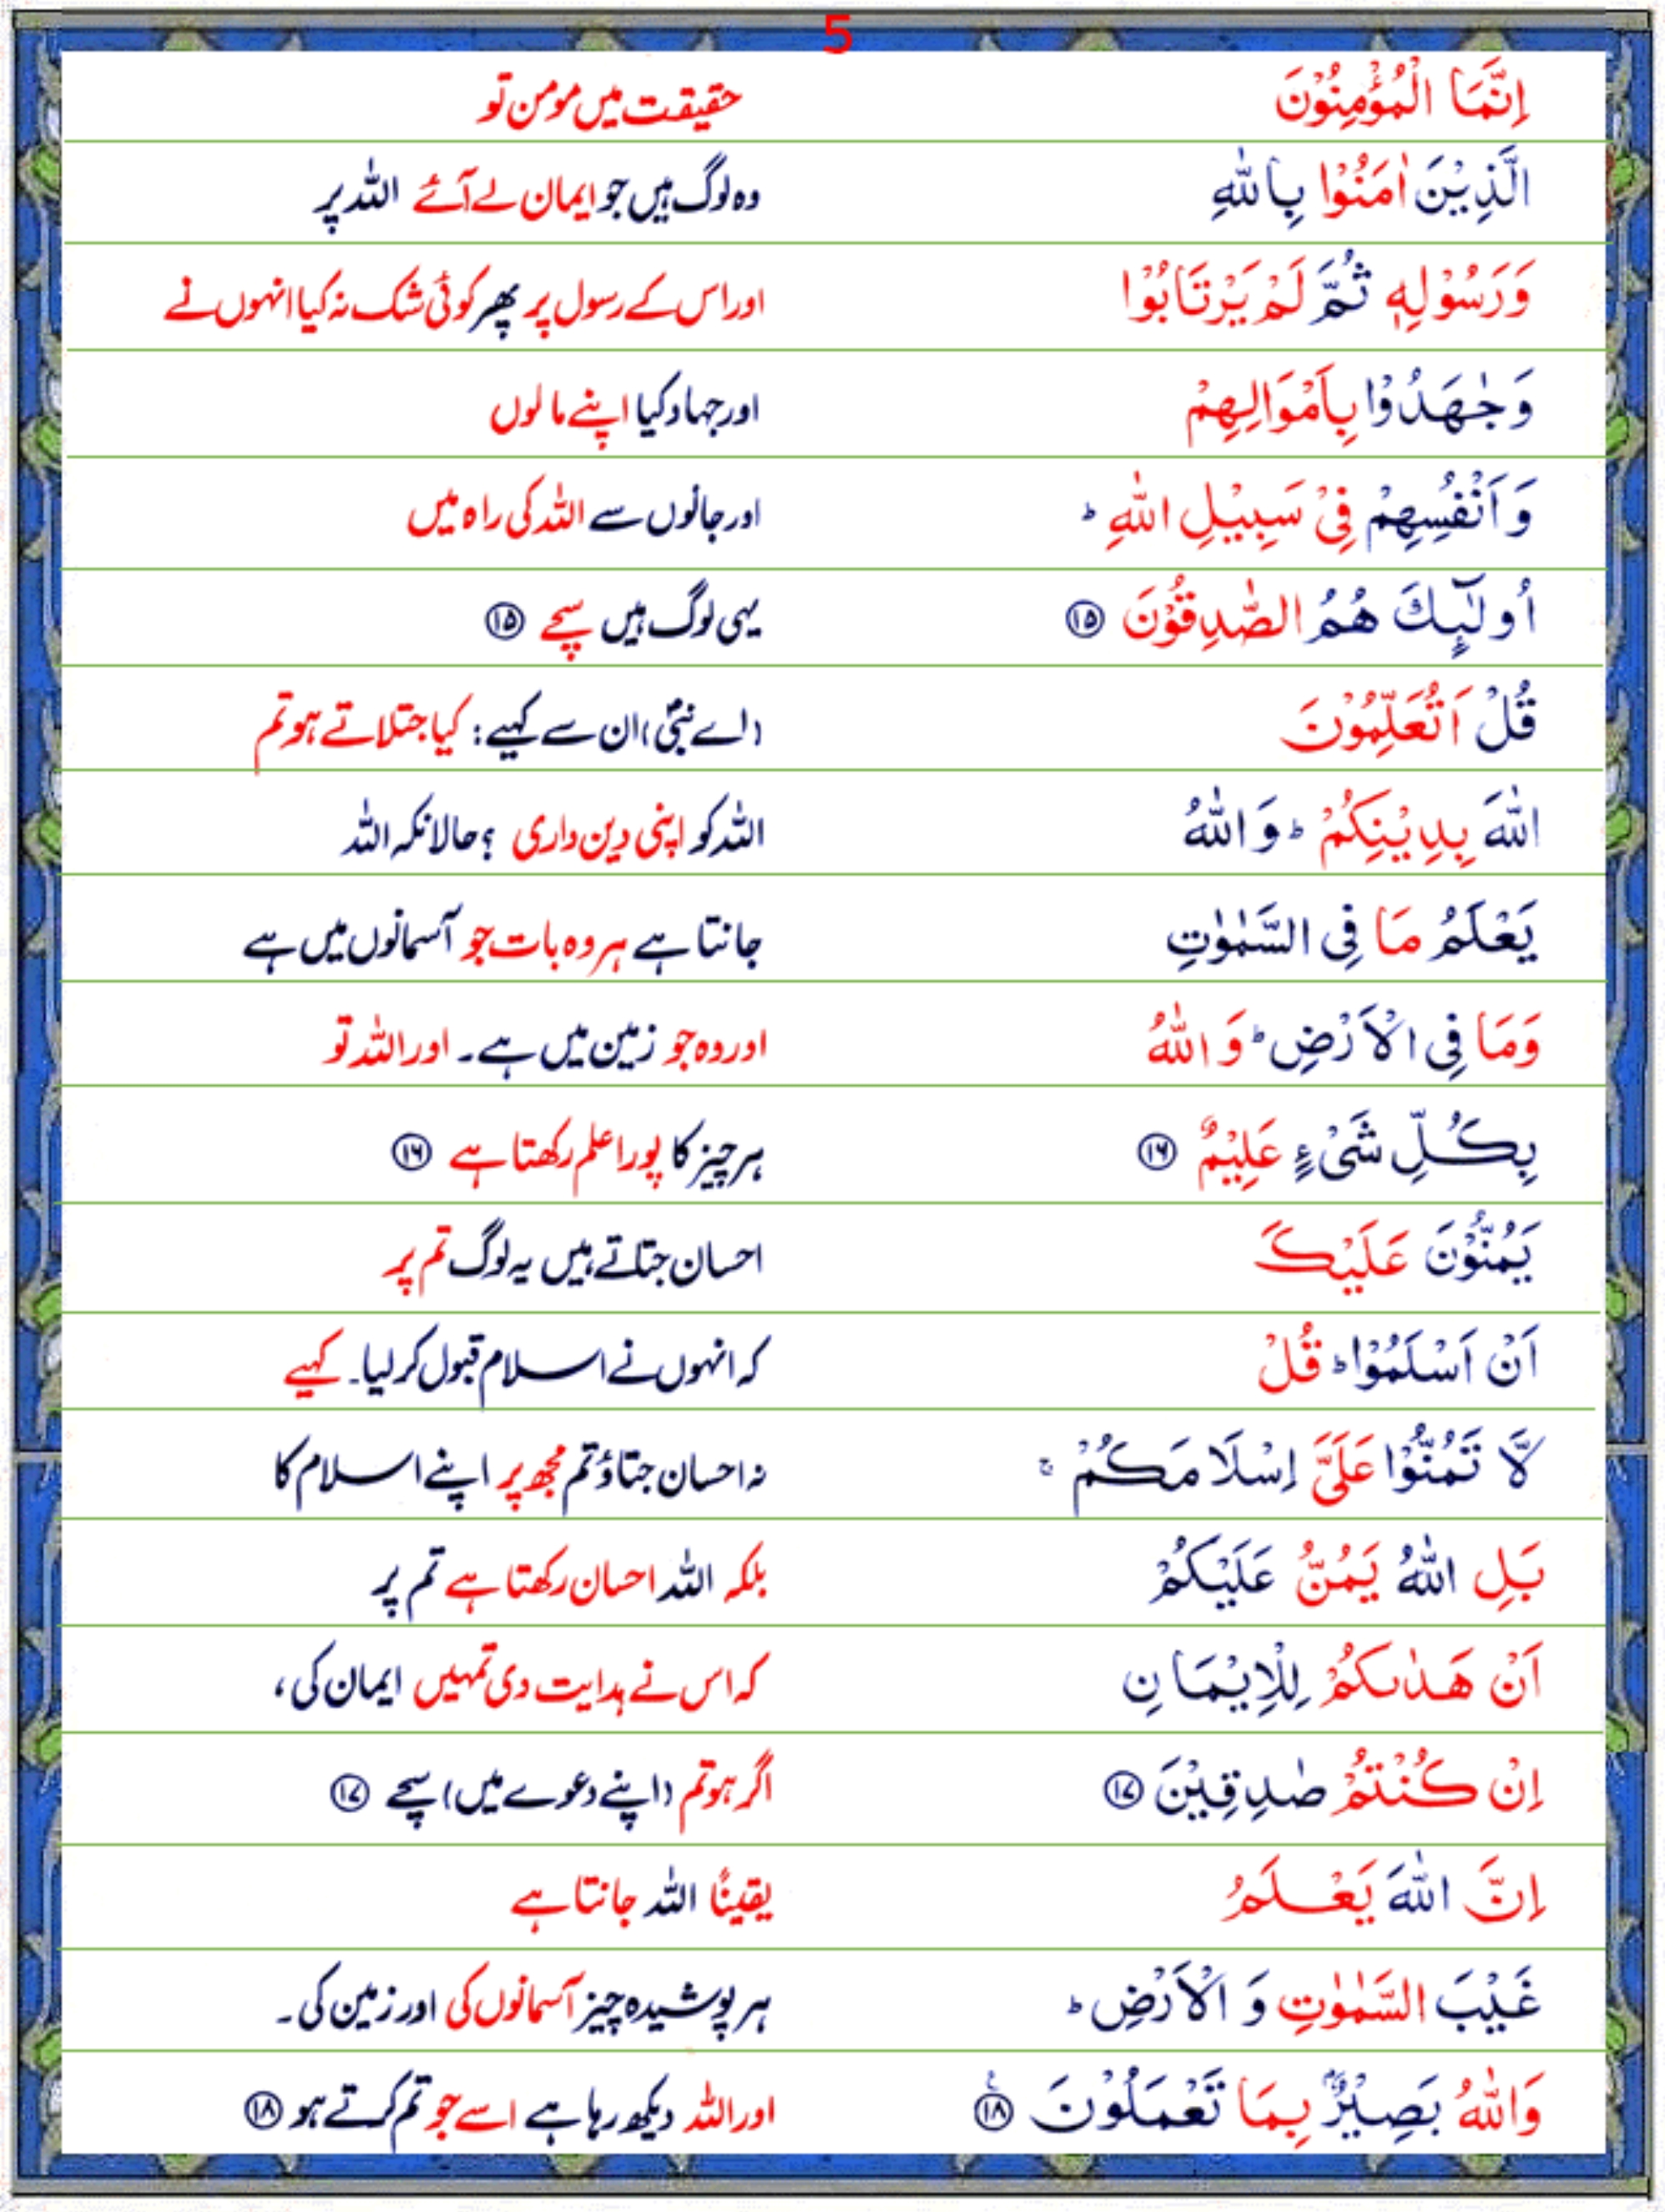 5
اِنَّمَا الْمُؤْمِنُوْنَ حقیقت میں مومن تو
الَّذِيْنَ اٰمَنُوْا بِاللّٰهِ وہ لوگ ہیں جو ایمان لے آئے اللہ پر
وَرَسُوْلِهٖ ثُمَّ لَمْ يَرْتَابُوْا اور اس کے رسول پر پھر کوئی شک نہ کیا انہوں نے
وَجٰهَدُوْا بِاَمْوَالِهِمْ اور جہاد کیا اپنے مالوں
وَاَنْفُسِهِمْ فِيْ سَبِيْلِ اللّٰهِ ؕ اور جانوں سے اللہ کی راہ میں
اُولٰٓئِكَ هُمُ الصّٰدِقُوْنَ ۱۵ یہی لوگ ہیں سچے ۱۵
قُلْ اَتُعَلِّمُوْنَ (اے نبیؐ) ان سے کہیے: کیا جتلاتے ہو تم
اللّٰهَ بِدِيْنِكُمْ ؕ وَاللّٰهُ اللہ کو اپنی دین داری ؟ حالانکہ اللہ
يَعْلَمُ مَا فِي السَّمٰوٰتِ جانتا ہے ہر وہ بات جو آسمانوں میں ہے
وَمَا فِي الْاَرْضِ ؕ وَاللّٰهُ اور وہ جو زمین میں ہے۔ اور اللہ تو
بِكُلِّ شَيْءٍ عَلِيْمٌ ۱۶ ہر چیز کا پورا علم رکھتا ہے ۱۶
يَمُنُّوْنَ عَلَيْكَ احسان جتاتے ہیں یہ لوگ تم پر
اَنْ اَسْلَمُوْا ؕ قُلْ کہ انہوں نے اسلام قبول کر لیا۔ کہیے
لَّا تَمُنُّوْا عَلَيَّ اِسْلَامَكُمْ ۚ نہ احسان جتاؤ تم مجھ پر اپنے اسلام کا
بَلِ اللّٰهُ يَمُنُّ عَلَيْكُمْ بلکہ اللہ احسان رکھتا ہے تم پر
اَنْ هَدٰىكُمْ لِلْاِيْمَانِ کہ اس نے ہدایت دی تمہیں ایمان کی،
اِنْ كُنْتُمْ صٰدِقِيْنَ ۱۷ اگر ہو تم (اپنے دعوے میں) سچے ۱۷
اِنَّ اللّٰهَ يَعْلَمُ یقیناً اللہ جانتا ہے
غَيْبَ السَّمٰوٰتِ وَالْاَرْضِ ؕ ہر پوشیدہ چیز آسمانوں کی اور زمین کی۔
وَاللّٰهُ بَصِيْرٌۢ بِمَا تَعْمَلُوْنَ ۱۸ۧ اور اللہ دیکھ رہا ہے اسے جو تم کرتے ہو ۱۸